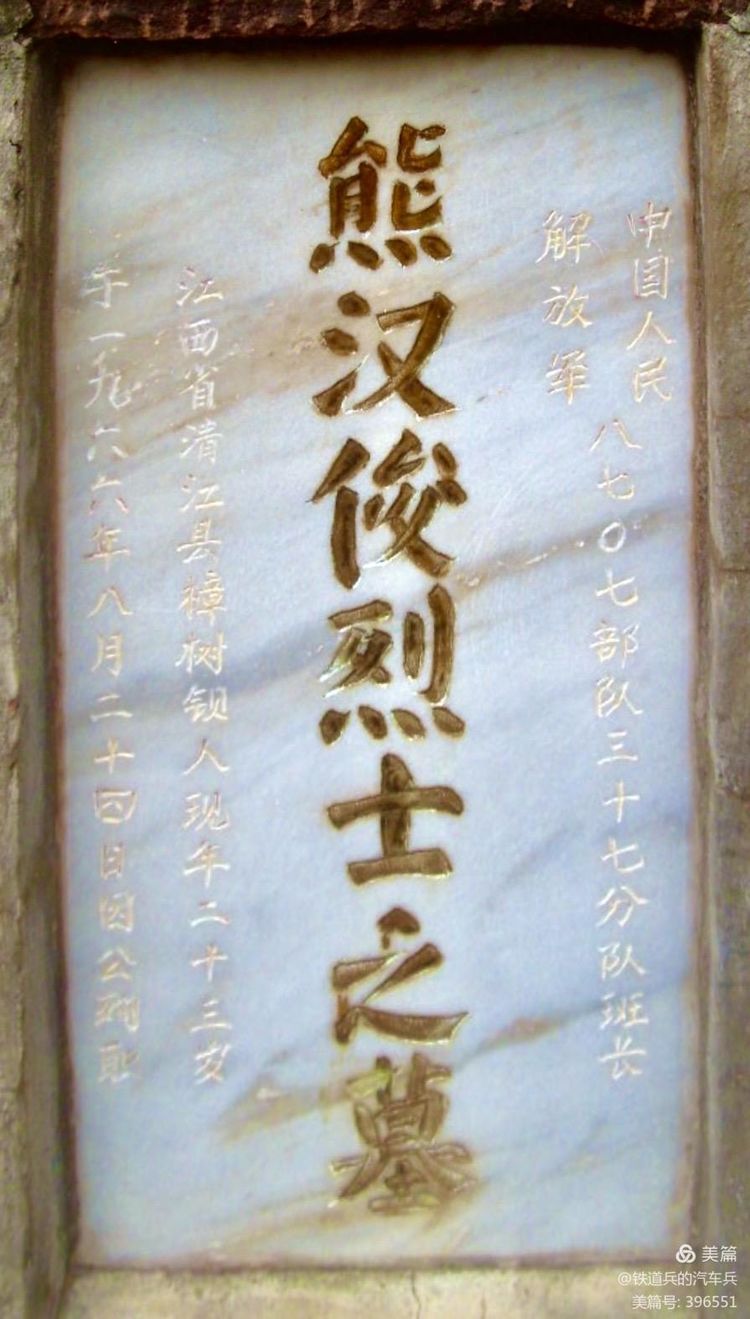 中国人民
解放军
八七〇七部队三十七分队班长
熊汉俊烈士之墓
江西省清江县樟树钡人现年二十三岁
于一九六六年八月二十四日因公殉职
美篇
@铁道兵的汽车兵
美篇号: 396551